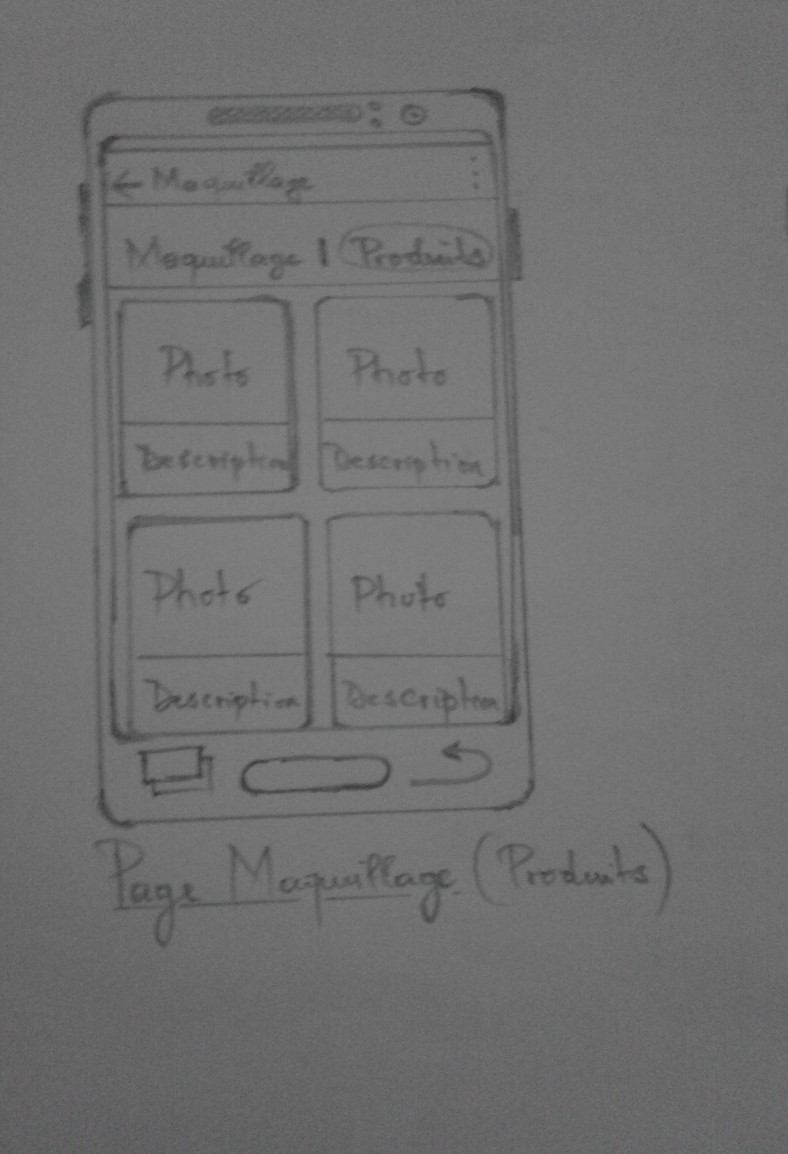 ← Maquillage
Maquillage | Produits
Photo Photo
Description Description
Photo Photo
Description Description
Page Maquillage (Produits)